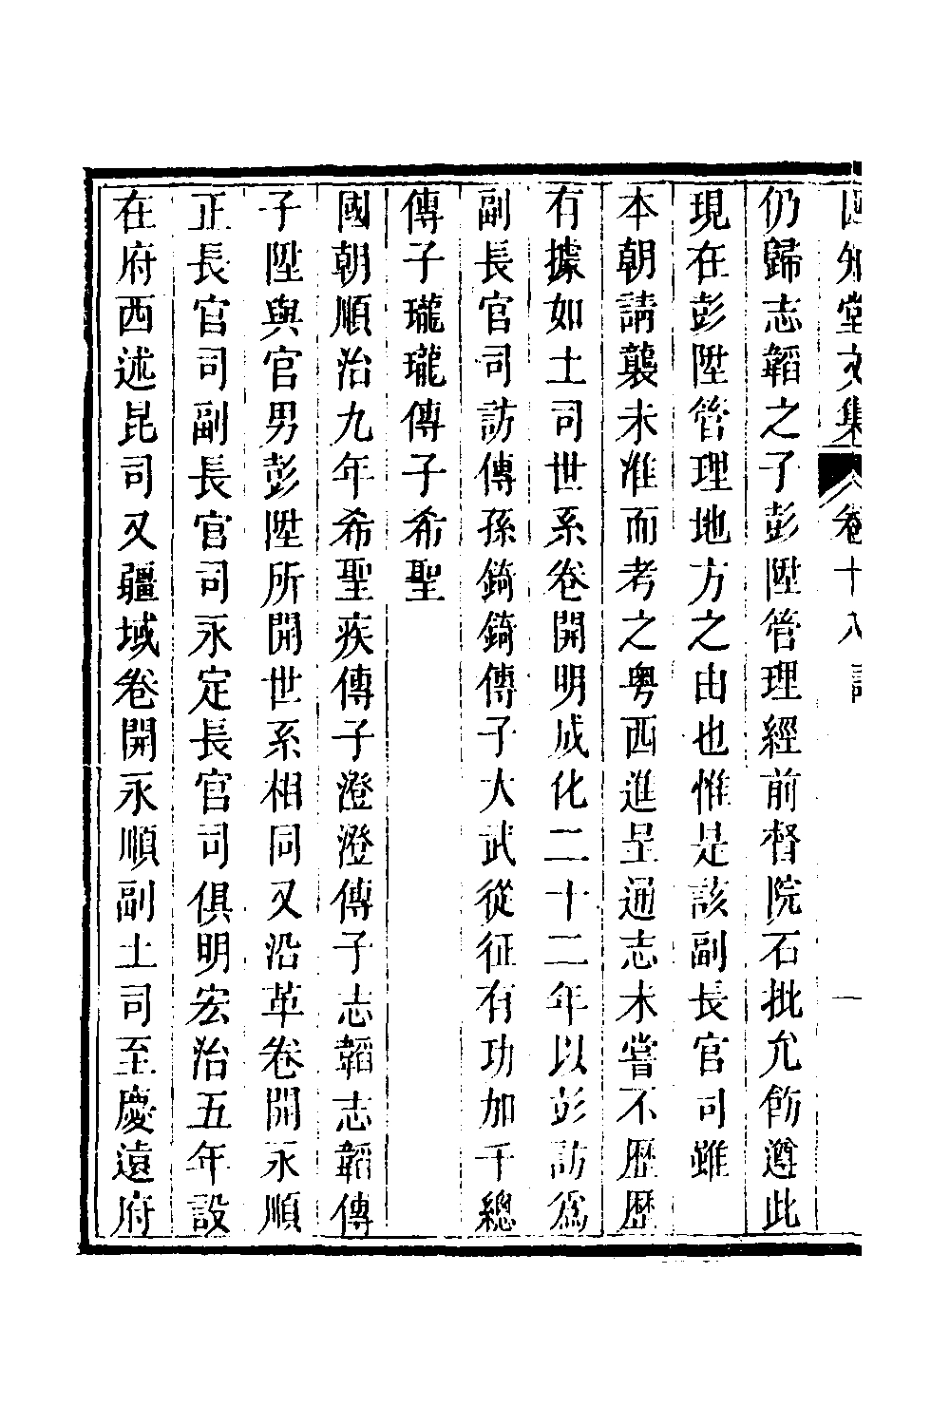 知堂文集　卷十八　一
仍歸志韜之子彭陞管理經前督院石批允飭遵此
現在彭陞管理地方之由也惟是該副長官司雖
本朝請襲未准而考之粵西進呈通志未嘗不歷歷
有據如土司世系卷開明成化二十二年以彭訪爲
副長官司訪傳孫錡錡傳子大武從征有功加千總
傳子瓏瓏傳子希聖
國朝順治九年希聖疾傳子澄澄傳子志韜志韜傳
子陞與官男彭陞所開世系相同又沿革卷開永順
正長官司副長官司永定長官司俱明宏治五年設
在府西述昆司又疆域卷開永順副土司至慶遠府